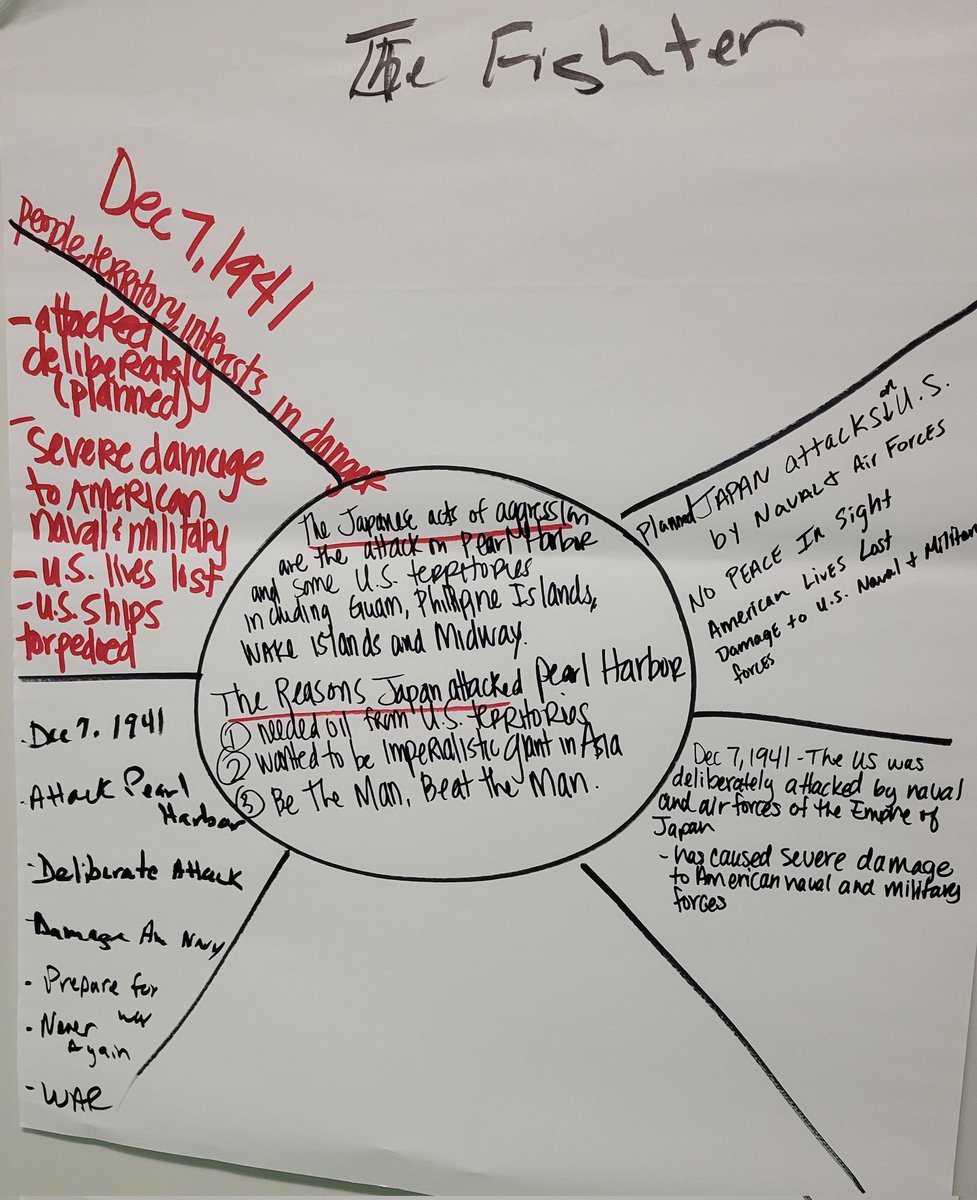 The Fighter
Dec 7, 1941
people, territory, interests in danger
- attacked
deliberately
(planned)
- severe damage
to AMERICAN
naval & military
- U.S. lives lost
- U.S. ships
torpedoed
Planned JAPAN attacks on U.S.
by NAVAL & Air Forces
NO PEACE IN Sight
American Lives Lost
Damage to U.S. Naval & Military
forces
The Japanese acts of aggression
are the attack on Pearl Harbor
and some U.S. territories
including Guam, Philippine Islands,
WAKE islands and Midway.
The Reasons Japan attacked Pearl Harbor
① needed oil from U.S. territories
② wanted to be imperialistic giant in Asia
③ Be The Man, Beat the Man.
- Dec 7, 1941
- Attack Pearl
Harbor
- Deliberate Attack
- Damage Am Navy
- Prepare for
war
- Never
Again
- WAR
Dec 7, 1941 - The US was
deliberately attacked by naval
and air forces of the Empire of
Japan
- has caused severe damage
to American naval and military
forces